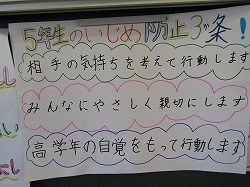 5年生のいじめ防止3か条!
相手の気持ちを考えて行動します
みんなにやさしく親切にします
高学年の自覚をもって行動します